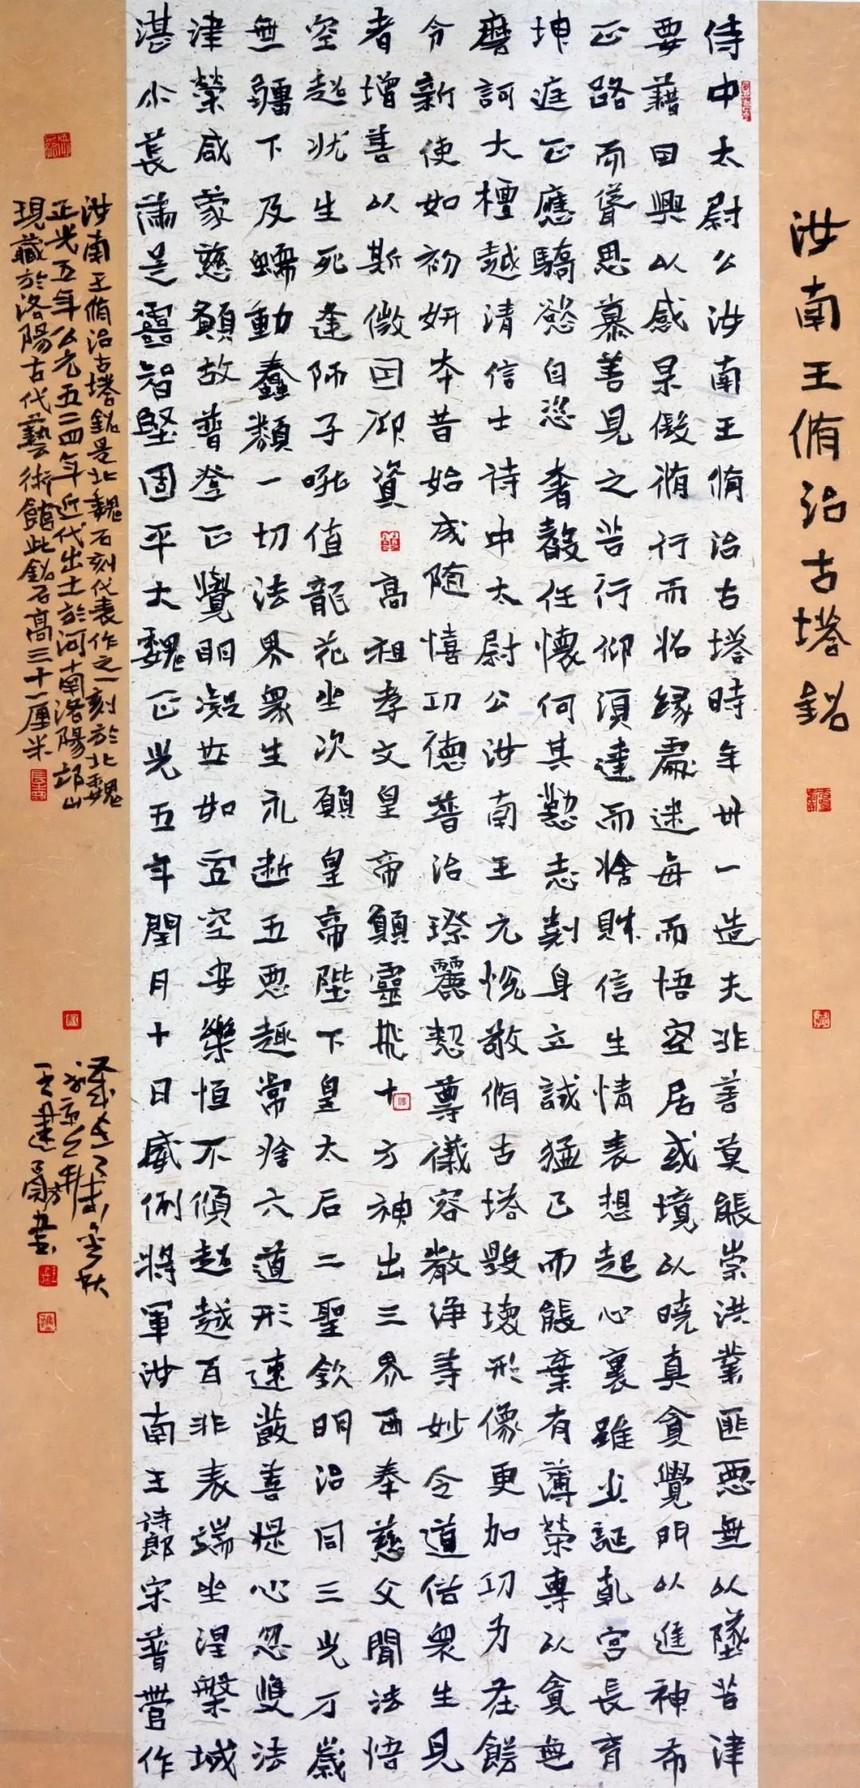 汝南王脩治古塔銘
侍中太尉公汝南王脩治古塔時年卅一造夫非善莫能崇洪業匪惡無以墜苦津
要藉因興以感果假脩行而招緣處迷每而悟空居或境以曉真貪覺門以進神布
正路而聳思慕善見之苦行仰須達而捨財信生情表想起心裏雖业誕乹宮長育
坤庭正應驕慾自恣奢嗀任懷何其懃志剋身立誠猛己而能棄有薄榮專以貪無
磨訶大檀越清信士侍中太尉公汝南王元悅敬脩古塔毀壞形像更加功力在餝
令新使如初妍本昔始成随憘功德普治璨麗懃尊儀容嚴淨等妙令道俗衆生見
者增善以斯微因仰資高祖孝文皇帝願靈飛十方神出三界面奉慈父聞法悟
空超狀生死逢師子吼值龍花坐次願皇帝陛下皇太后二聖欽明治同三光万歲
無疆下及蠕動蠢類一切法界衆生永斷五惡趣常捨六道形速發善提心忽雙法
津榮咸蒙慈願故普登正覺明凝菇如空安樂恒不傾超越百非表端坐涅槃域
湛尒萇蒲是靈智堅固平大魏正光五年閏月十日威例將軍汝南王侍郎宋普營作
汝南王脩治古塔銘是北魏石刻代表作之一刻於北魏
正光五年公元五二四年近代出土於河南洛陽邙山
現藏於洛陽古代藝術館此銘石高三十一厘米